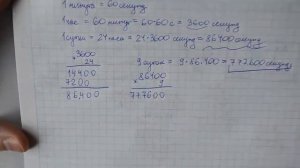 1 минута = 60 секунд
1 час = 60 минут = 60·60 с = 3600 секунд
1 сутки = 24 часа = 24·3600 секунд = 86400 секунд
× 3600
24
14400
7200
86400
9 суток = 9·86.400 = 777.600 секунд
× 86400
9
777600